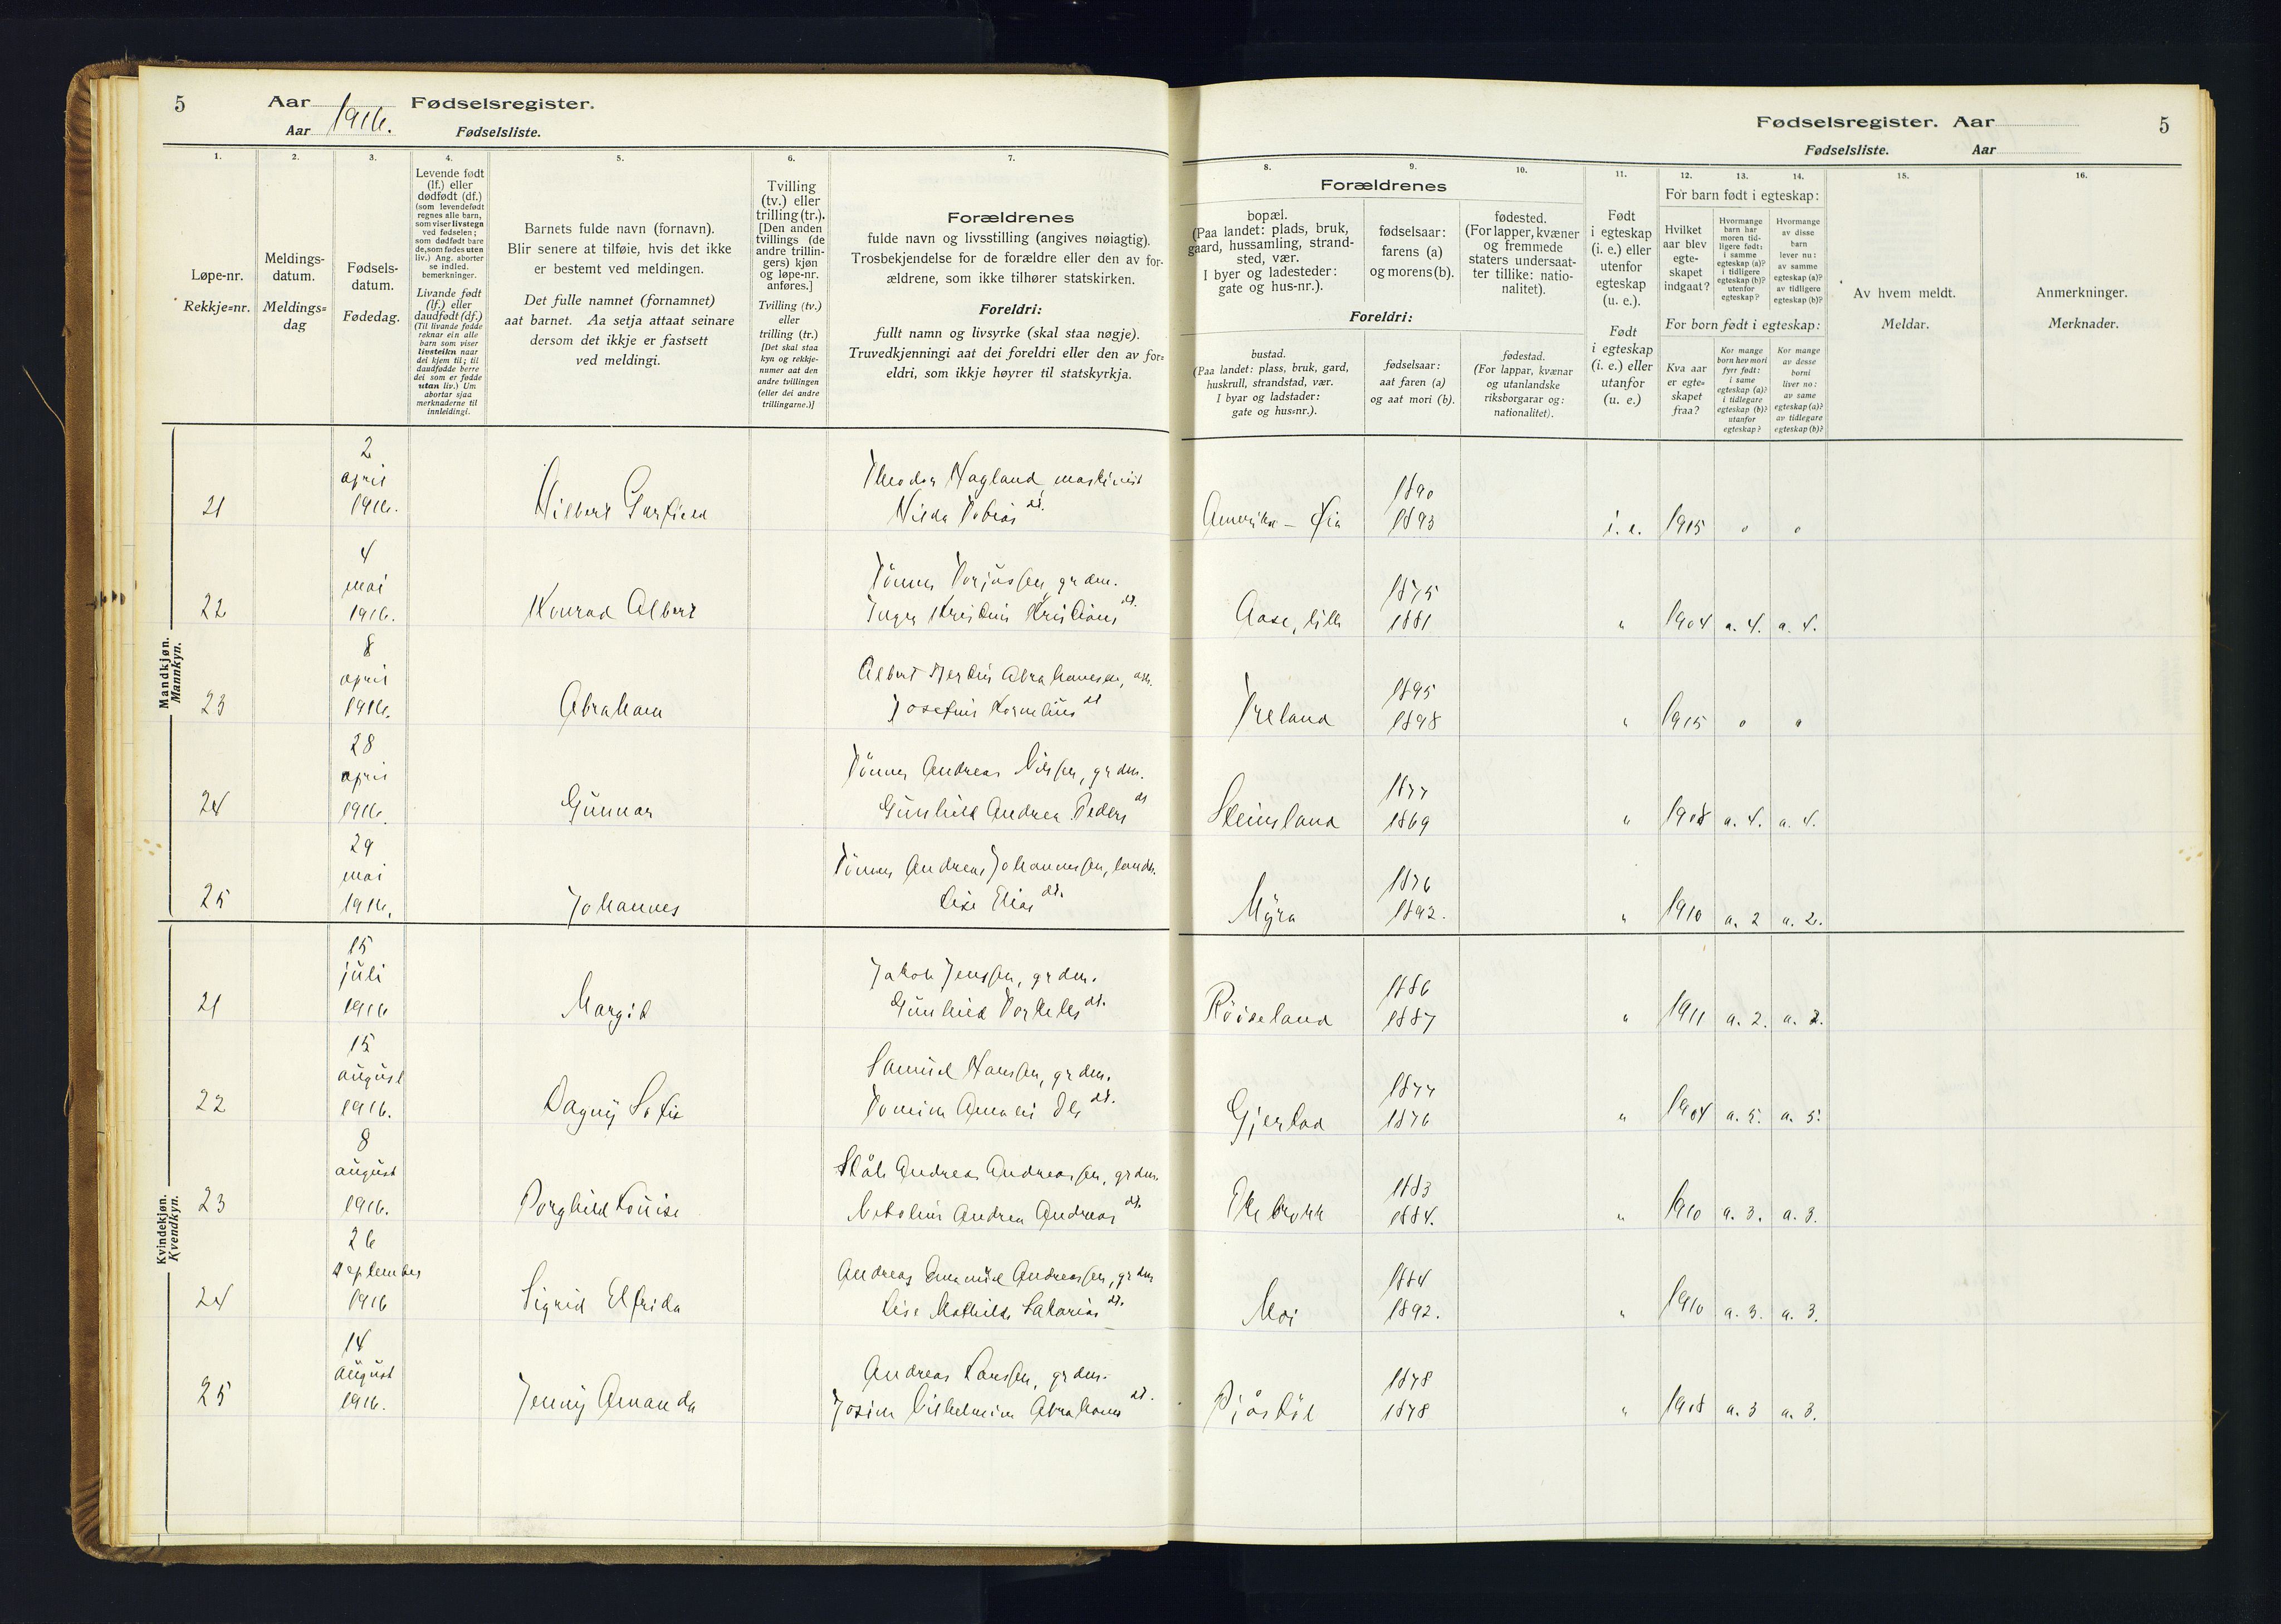 5
Aar 1916. Fødselsregister.
Aar Fødselsliste.
1.
2.
3.
4.
5.
6.
7.
Løpe-nr.
Rekkje=nr.
Meldings-
datum.
Meldings=
dag
Fødsels-
datum.
Fødedag.
Levende født
(lf.) eller
dødfødt (df.)
(som levendefødt
regnes alle barn,
som viser livstegn
ved fødselen;
som dødfødt bare
de, som fødes uten
liv.) Ang. aborter
se indled.
bemerkninger.
Livande født
(lf.) eller
daudfødt (df.)
(Til livande fødde
reknar ein alle
barn som viser
livsteikn naar
dei kjem til; til
daudfødde berre
dei som er fødde
utan liv.) Um
abortar sjaa
merknaderne til
innleidingi.
Barnets fulde navn (fornavn).
Blir senere at tilføie, hvis det ikke
er bestemt ved meldingen.
Det fulle namnet (fornamnet)
aat barnet. Aa setja attaat seinare
dersom det ikkje er fastsett
ved meldingi.
Tvilling
(tv.) eller
trilling (tr.).
[Den anden
tvillings (de
andre trillin-
gers) kjøn
og løpe-nr.
anføres.]
Tvilling (tv.)
eller
trilling (tr.)
[Det skal staa
kyn og rekkje-
numer aat den
andre tvillingen
(eller dei andre
trillingarne.)]
Forældrenes
fulde navn og livsstilling (angives nøiagtig).
Trosbekjendelse for de forældre eller den av for-
ældrene, som ikke tilhører statskirken.
Foreldri:
fullt namn og livsyrke (skal staa nøgje).
Truvedkjenningi aat dei foreldri eller den av for=
eldri, som ikkje høyrer til statskyrkja.
Fødselsregister. Aar
5
Fødselsliste. Aar
8.
9.
10.
11.
12.
13.
14.
15.
16.
Forældrenes
bopæl.
(Paa landet: plads, bruk,
gaard, hussamling, strand-
sted, vær.
I byer og ladesteder:
gate og hus-nr.).
fødselsaar:
farens (a)
og morens (b).
fødested.
(For lapper, kvæner
og fremmede
staters undersaat-
ter tillike: natio-
nalitet).
Foreldri:
bustad.
(Paa landet: plass, bruk, gard,
huskrull, strandstad, vær.
I byar og ladstader:
gate og hus=nr.).
fødselsaar:
aat faren (a)
og aat mori (b).
fødestad.
(For lappar, kvænar
og utanlandske
riksborgarar og:
nationalitet).
Født
i egteskap
(i. e.) eller
utenfor
egteskap
(u. e.).
Født
i egteskap
(i. e.) eller
utanfor
(u. e.)
For barn født i egteskap:
Hvilket
aar blev
egte-
skapet
indgaat?
Hvormange
barn har
moren tid-
ligere født:
i samme
egteskap (a)?
i tidligere
egteskap (b)?
utenfor
egteskap?
Hvormange
av disse
barn
lever nu:
av samme
egteskap (a)?
av tidligere
egteskap (b)?
For born født i egteskap:
Kva aar
er egte=
skapet
fraa?
Kor mange
born hev mori
fyrr født:
i same
egteskap (a)?
i tidlegare
egteskap (b)?
utanfor
egteskap?
Kor mange
av desse
borni
liver no:
av same
egteskap (a)?
av tidlegare
egteskap (b)?
Av hvem meldt.
Meldar.
Anmerkninger.
Merknader.
Mandkjøn.
Mannkyn.
21 2 april 1916. Hilbert Garfield
Theodor Hagland, maskinist
Hilda Tobias dt.
Amerika – Øia 1890 1893 i. e. 1915 0 0
22 4 mai 1916. Konrad Albert
Tønnes Torjussen, grdm.
Inger Kristine Kristians dt.
Aase, lille 1875 1881 " 1904 a. 4. a. 4.
23 8 april 1916. Abraham
Albert Bertin Abrahamsen, arb.
Josefine Kornelius dt
Ireland 1895 1898 " 1915 0 0
24 28 april 1916. Gunnar
Tønnes Andreas Nilssen, grdm.
Gunhild Andrea Peders dt
Steinsland 1877 1869 " 1908 a. 4. a. 4.
25 29 mai 1916. Johannes
Tønnes Andreas Johannessen, landm.
Lise Elias dt.
Myra 1876 1892. " 1910 a. 2 a. 2.
Kvindekjøn.
Kvendkyn.
21 15 juli 1916 Margit
Jakob Jenssen, grdm.
Gunhild Torkels dt.
Røiseland 1886 1887 " 1911 a. 2. a. 2.
22 15 august 1916. Dagny Sofie
Samuel Hanssen, grdm.
Tomine Amalie Ols dt.
Gjerstad 1877 1876 " 1904 a. 5. a. 5.
23 8 august 1916. Borghild Louise
Ståle Andreas Andreassen, grdm.
Netoline Andrea Andreas dt.
Ekebrokk 1883 1884. " 1910 a. 3. a. 3.
24 26 september 1916 Sigrid Elfrida
Andreas Emanuel Andreassen, grdm
Lise Mathilde Sakarias dt.
Moi 1884 1892. " 1910 a. 3. a. 3.
25 14 august 1916. Jenny Amanda
Andreas Larssen, grdm.
Josine Vilhelmine Abrahams dt.
1878 1878 " 1908 a. 3 a. 3.